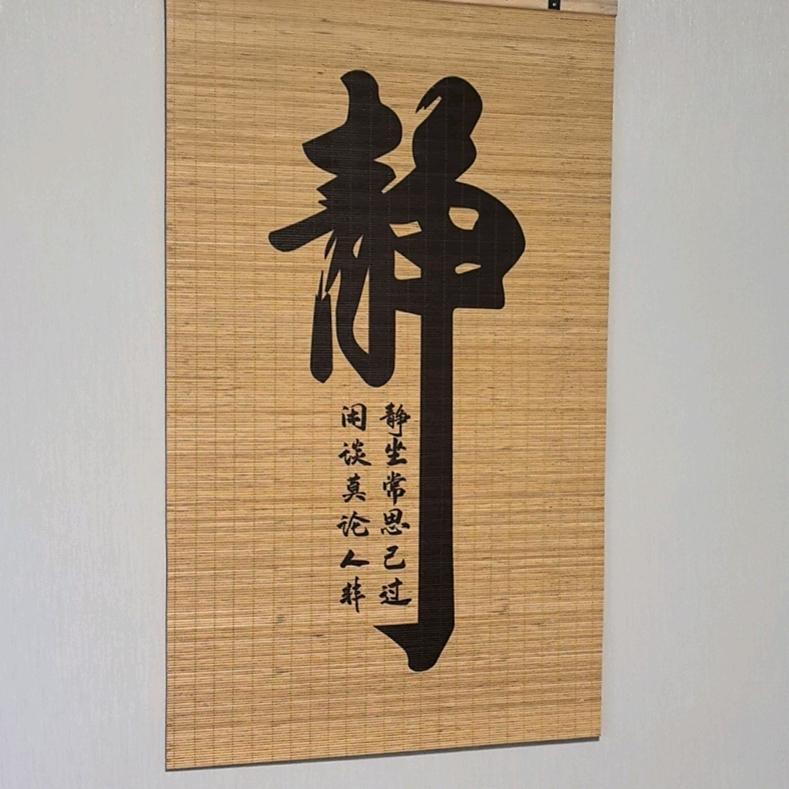 静
静坐常思己过
闲谈莫论人非